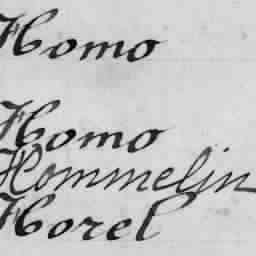 Homo
Homo
Hommelin
Horel